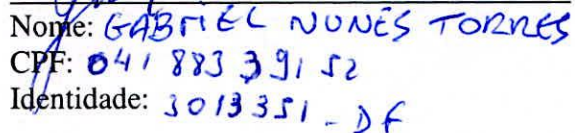 Nome: GABRIEL NUNES TORRES
CPF: 041 883 391 52
Identidade: 3013351 - DF